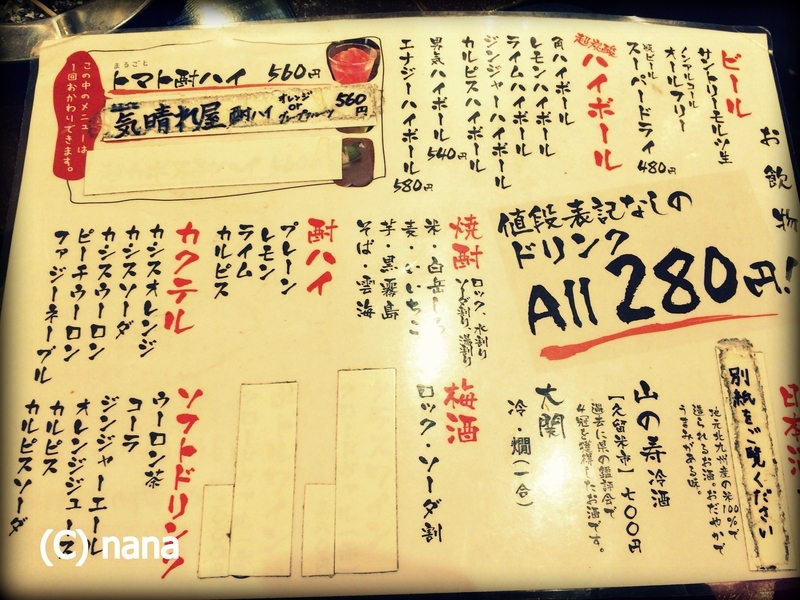 お飲物
ビール
サントリーモルツ生
ノンアルコール
オールフリー
瓶ビール
スーパードライ 480円
超炭酸
ハイボール
角ハイボール
レモンハイボール
ライムハイボール
ジンジャーハイボール
カルピスハイボール
男気ハイボール 540円
エナジーハイボール 580円
まるごと
トマト酎ハイ 560円
気晴れ屋酎ハイ オレンジ or グレープフルーツ 560円
この中のメニューは
1回おかわりできます。
値段表記なしの
ドリンク
All 280円!
焼酎
ロック、水割り
ソーダ割り、湯割り
米・白岳しろ
麦・いいちこ
芋・黒霧島
そば・雲海
酎ハイ
プレーン
レモン
ライム
カルピス
カクテル
カシスオレンジ
カシスソーダ
カシスウーロン
ピーチウーロン
ファジーネーブル
日本酒
別紙をご覧ください
地元北九州産の米100%で
造られるお酒。おだやかで
うまみがある味。
山の寿 冷酒
【久留米市】 七〇〇円
過去に県の鑑評会で
4冠を獲得したお酒です。
大関
冷・燗(一合)
梅酒
ロック・ソーダ割
ソフトドリンク
ウーロン茶
コーラ
ジンジャーエール
オレンジジュース
カルピス
カルピスソーダ
(C) nana